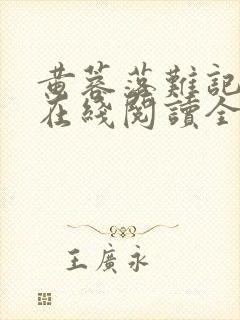 黄蓉落難記
在綫閱讀全
王廣永